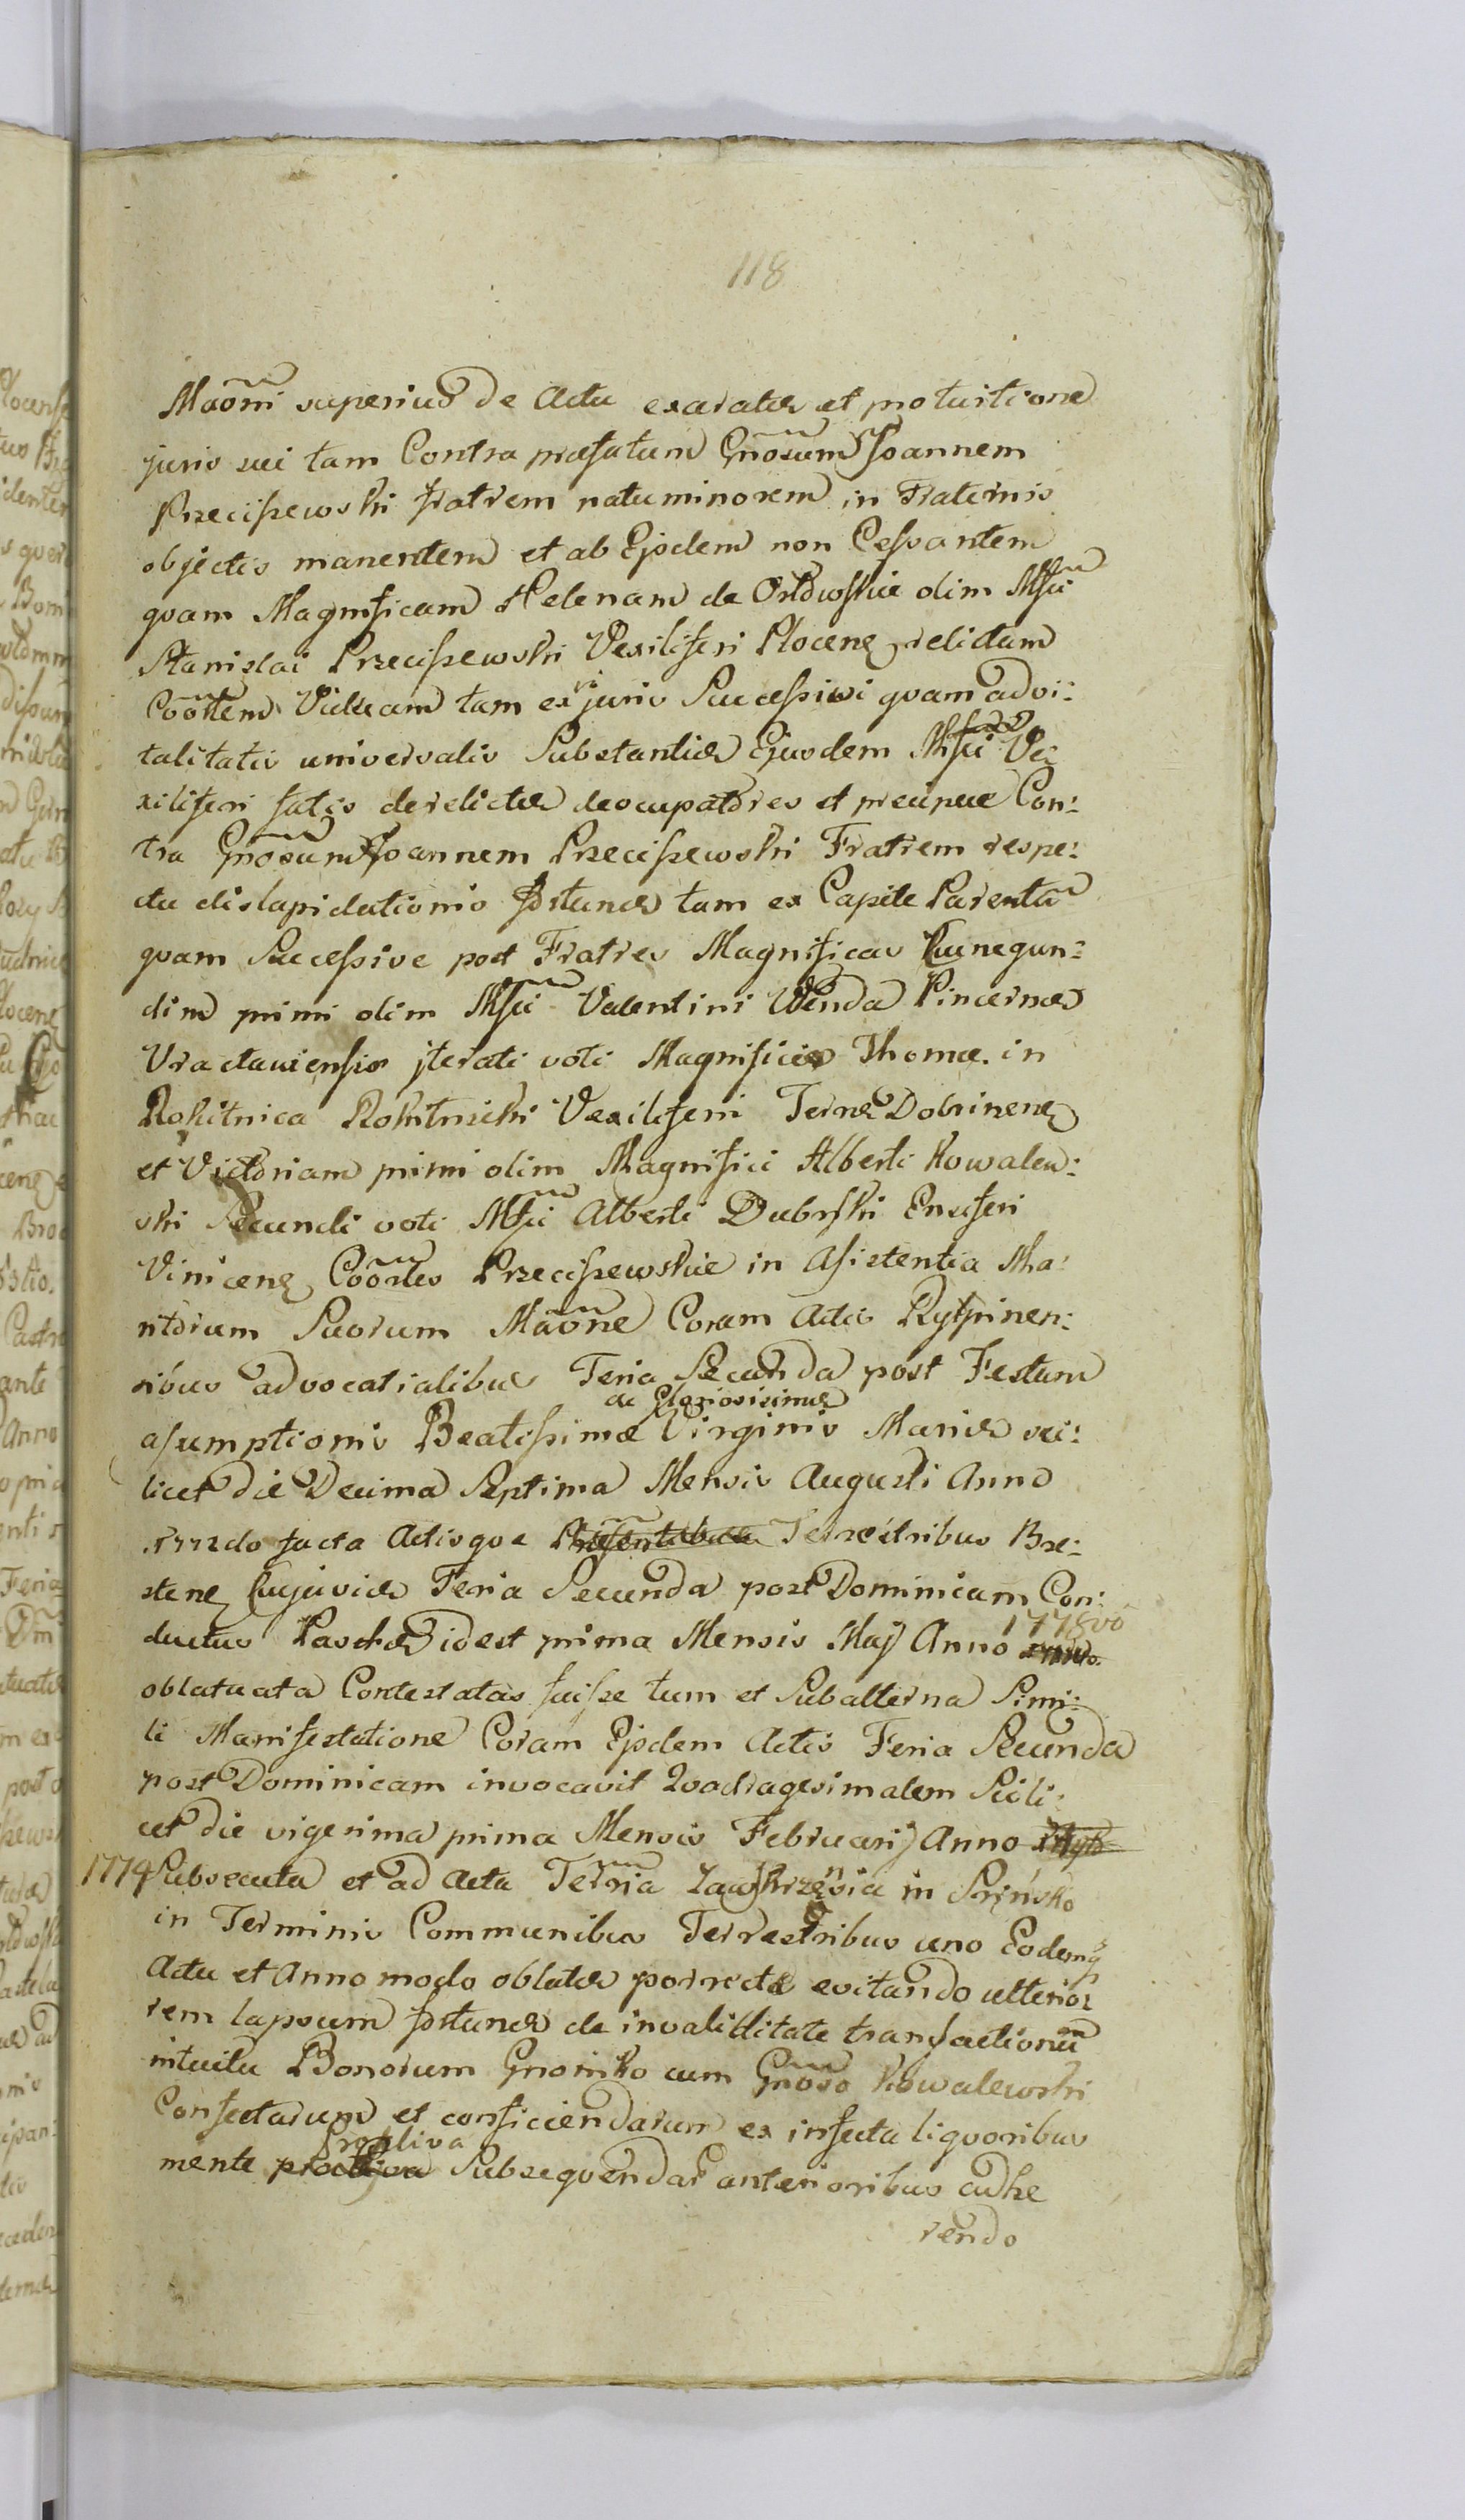 118
Maõni superius de Actu exaratæ et pro tuitione
juris sui tam Contra præfatum Gnõsum Joannem
Przeciszewski fratrem natu minorem in Fraternis
objectis manentem et ab Ejsdem non Cessantem
qvam Magnificam Helenam de Orłowskie olim Mfci
Stanislai Przeciszewski Vexiliferi Plocenę relictam
Coõrtem Viduam tam ex vi juris Successivi qvam advi:
talitatis universalis Substantiæ Ejusdem Mfci Ve:
xiliferi fatis derelictæ deocupatores et precipue Con:
tra Gnõsum Joannem Przeciszewski Fratrem respe:
ctu dislapidationis fortunæ tam ex Capite Parentũ
qvam Successive post Fratres Magnificas Cunegun:
dim primi olim Mfci Valentini Wenda Pincernæ
Vractaviensis jterati voti Magnificæ Thomæ in
Rokitnica Rokitnicki Vexiliferi Terræ Dobrinenę
et Victoriam primi olim Magnifici Alberti Kowalew:
ski Secundi voti Mfci Alberti Dubrski Ensiferi
Vinicenę Coõrtes Przeciszewskie in Asistentia Ma:
ritorum Suorum Maõne Coram Actis Rypinen:
sibus advocatialibus Feria Secunda post Festum
ac Gloriosisimæ
asumptionis Beatissimæ Virginis Mariæ sci:
licet die Decima Septima Mensis Augusti Anno
1772do facta Actisqve Præsentibus Terrestribus Brze:
stenę Cujaviæ Feria Secunda post Dominicam Con:
1778vo
ductus Paschæ idest prima Mensis Maj Anno
oblatuata Contestatas fuisse tum et Subalterna Simi:
li Manifestatione Coram Ejsdem Actis Feria Secunda
post Dominicam invocavit Qvadragesimalem Scili:
cet die vigesima prima Mensis Februarij Anno
1774 Subsecuta et ad Acta Terria Zawkrzęnsia in Srińsko
in Terminis Communibus Terrestribus uno Eodemq
Actu et Anno modo oblatæ porrectæ evitando ulterio:
rem lapsum fortunæ de invaliditate transactionũ
intuitu Bonorum Gnoinko cum Gnõso Kowalewski
Confectarum et conficiendarum ex infecta liqvoribus
Procliva
mente procliva Subseqvendas anterioribus adhe
rendo